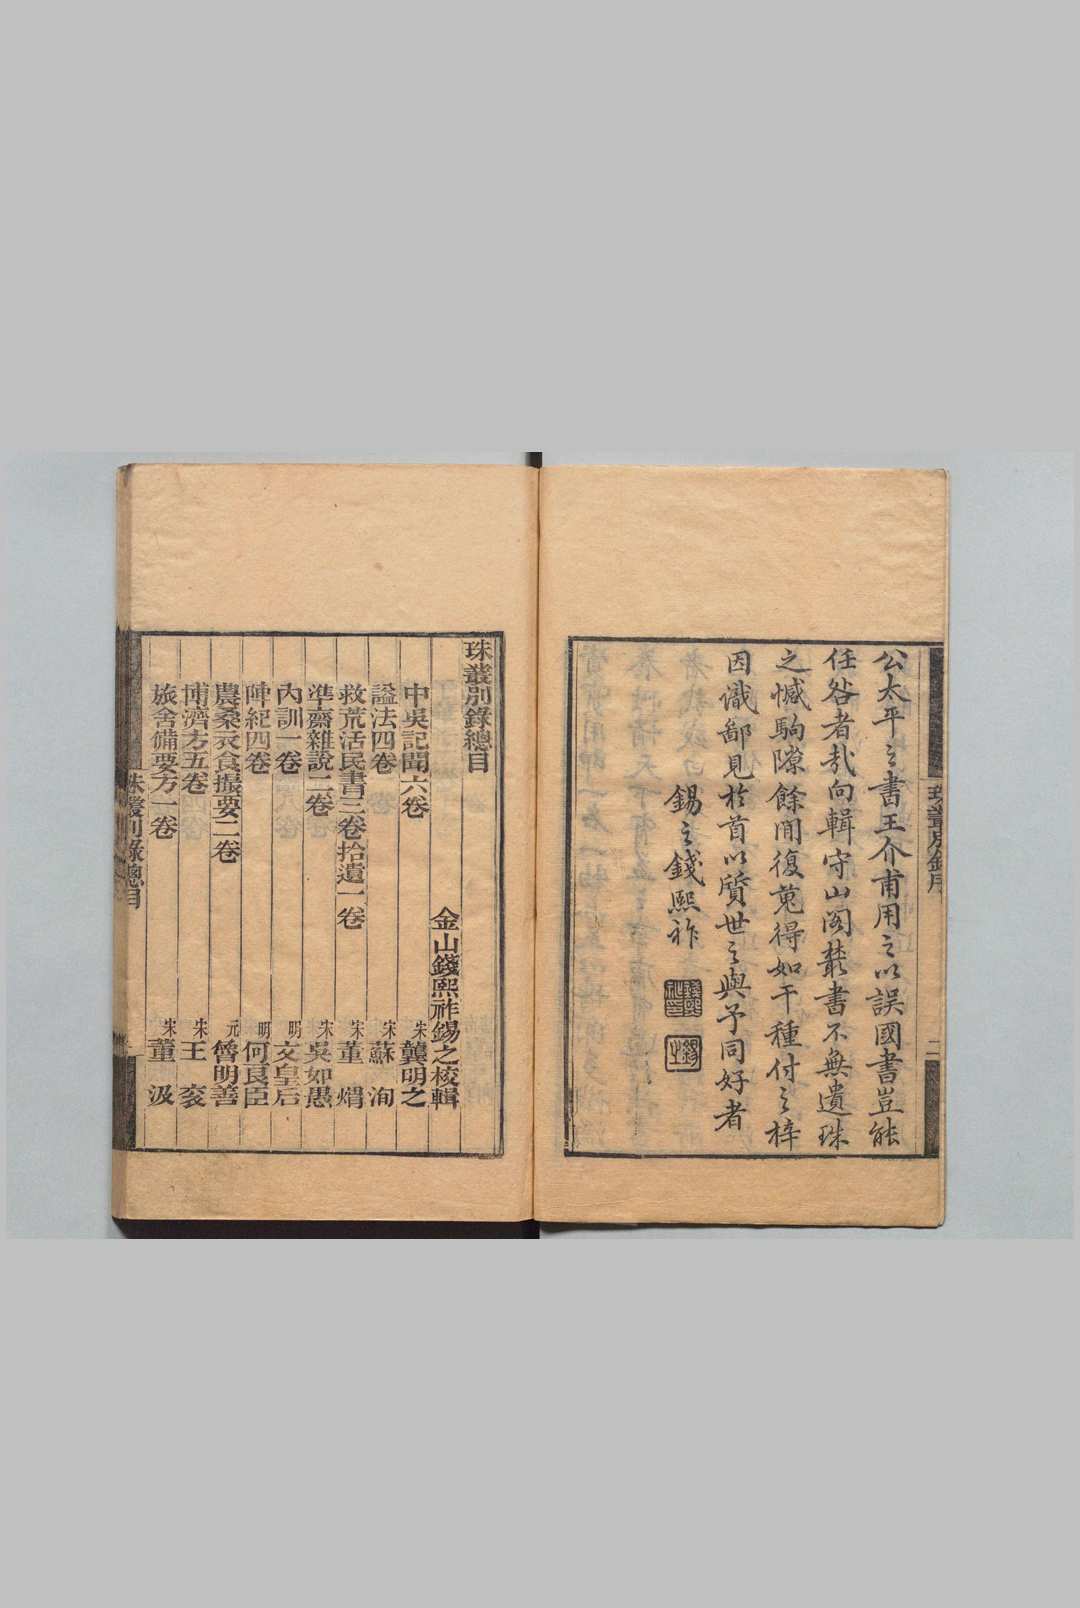 公太平之書王介甫用之以誤國書豈能
任咎者哉向輯守山閣叢書不無遺珠
之憾駒隙餘閒復蒐得如干種付之梓
因識鄙見於首以質世之與予同好者
錫之錢熙祚
珠叢別錄序
二
珠叢別錄總目
金山錢熙祚錫之校輯
中吳記聞六卷 宋龔明之
謚法四卷 宋蘇洵
救荒活民書三卷拾遺一卷 宋董煟
準齋雜說二卷 宋吳如愚
內訓一卷 明文皇后
陣紀四卷 明何良臣
農桑衣食撮要二卷 元魯明善
博濟方五卷 宋王袞
旅舍備要方一卷 宋董汲
珠叢別錄總目